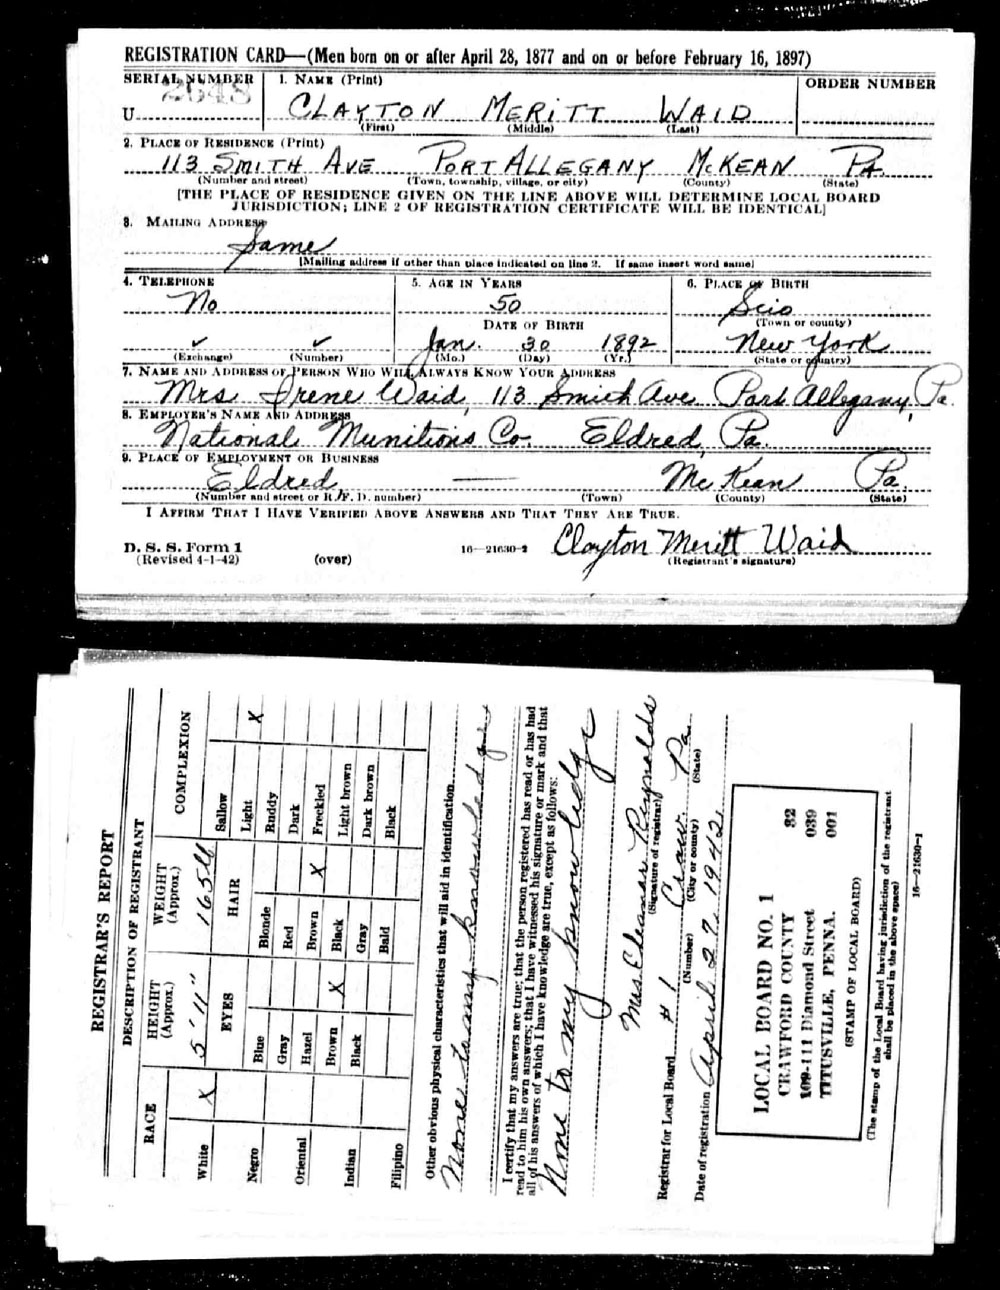 REGISTRATION CARD—(Men born on or after April 28, 1877 and on or before February 16, 1897)
SERIAL NUMBER 1. NAME (Print) ORDER NUMBER
2648
U CLAYTON MERITT WAID
(First) (Middle) (Last)
2. PLACE OF RESIDENCE (Print)
113 SMITH AVE PORT ALLEGANY MCKEAN PA.
(Number and street) (Town, township, village, or city) (County) (State)
[THE PLACE OF RESIDENCE GIVEN ON THE LINE ABOVE WILL DETERMINE LOCAL BOARD
JURISDICTION; LINE 2 OF REGISTRATION CERTIFICATE WILL BE IDENTICAL]
3. MAILING ADDRESS
Same
[Mailing address if other than place indicated on line 2. If same insert word same]
4. TELEPHONE 5. AGE IN YEARS 6. PLACE OF BIRTH
No 50 Scio
DATE OF BIRTH (Town or county)
✓ ✓ Jan. 30 1892 New York
(Exchange) (Number) (Mo.) (Day) (Yr.) (State or country)
7. NAME AND ADDRESS OF PERSON WHO WILL ALWAYS KNOW YOUR ADDRESS
Mrs Irene Waid, 113 Smith Ave Port Allegany, Pa.
8. EMPLOYER'S NAME AND ADDRESS
National Munitions Co. Eldred, Pa.
9. PLACE OF EMPLOYMENT OR BUSINESS
Eldred — McKean Pa.
(Number and street or R. F. D. number) (Town) (County) (State)
I AFFIRM THAT I HAVE VERIFIED ABOVE ANSWERS AND THAT THEY ARE TRUE.
D. S. S. Form 1
(Revised 4-1-42) (over) 16—21630-2 Clayton Meritt Waid
(Registrant's signature)
REGISTRAR'S REPORT
DESCRIPTION OF REGISTRANT
RACE HEIGHT (Approx.) WEIGHT (Approx.) COMPLEXION
5'11" 165 lb
White X EYES HAIR Sallow
Light X
Negro Blue Blonde Ruddy
Gray Red Dark
Oriental Hazel Brown X Freckled
Brown X Black Light brown
Indian Black Gray Dark brown
Bald Black
Filipino
Other obvious physical characteristics that will aid in identification
None to my knowledge
I certify that my answers are true; that the person registered has read or has had
read to him his own answers; that I have witnessed his signature or mark and that
all of his answers of which I have knowledge are true, except as follows:
None to my knowledge
Mrs. Eleanor Reynolds
(Signature of registrar)
Registrar for Local Board #1 Craw. Pa.
(Number) (City or county) (State)
Date of registration April 27, 1942
LOCAL BOARD NO. 1 32
CRAWFORD COUNTY 039
109-111 Diamond Street 001
TITUSVILLE, PENNA.
(STAMP OF LOCAL BOARD)
(The stamp of the Local Board having jurisdiction of the registrant
shall be placed in the above space)
16—21630-1